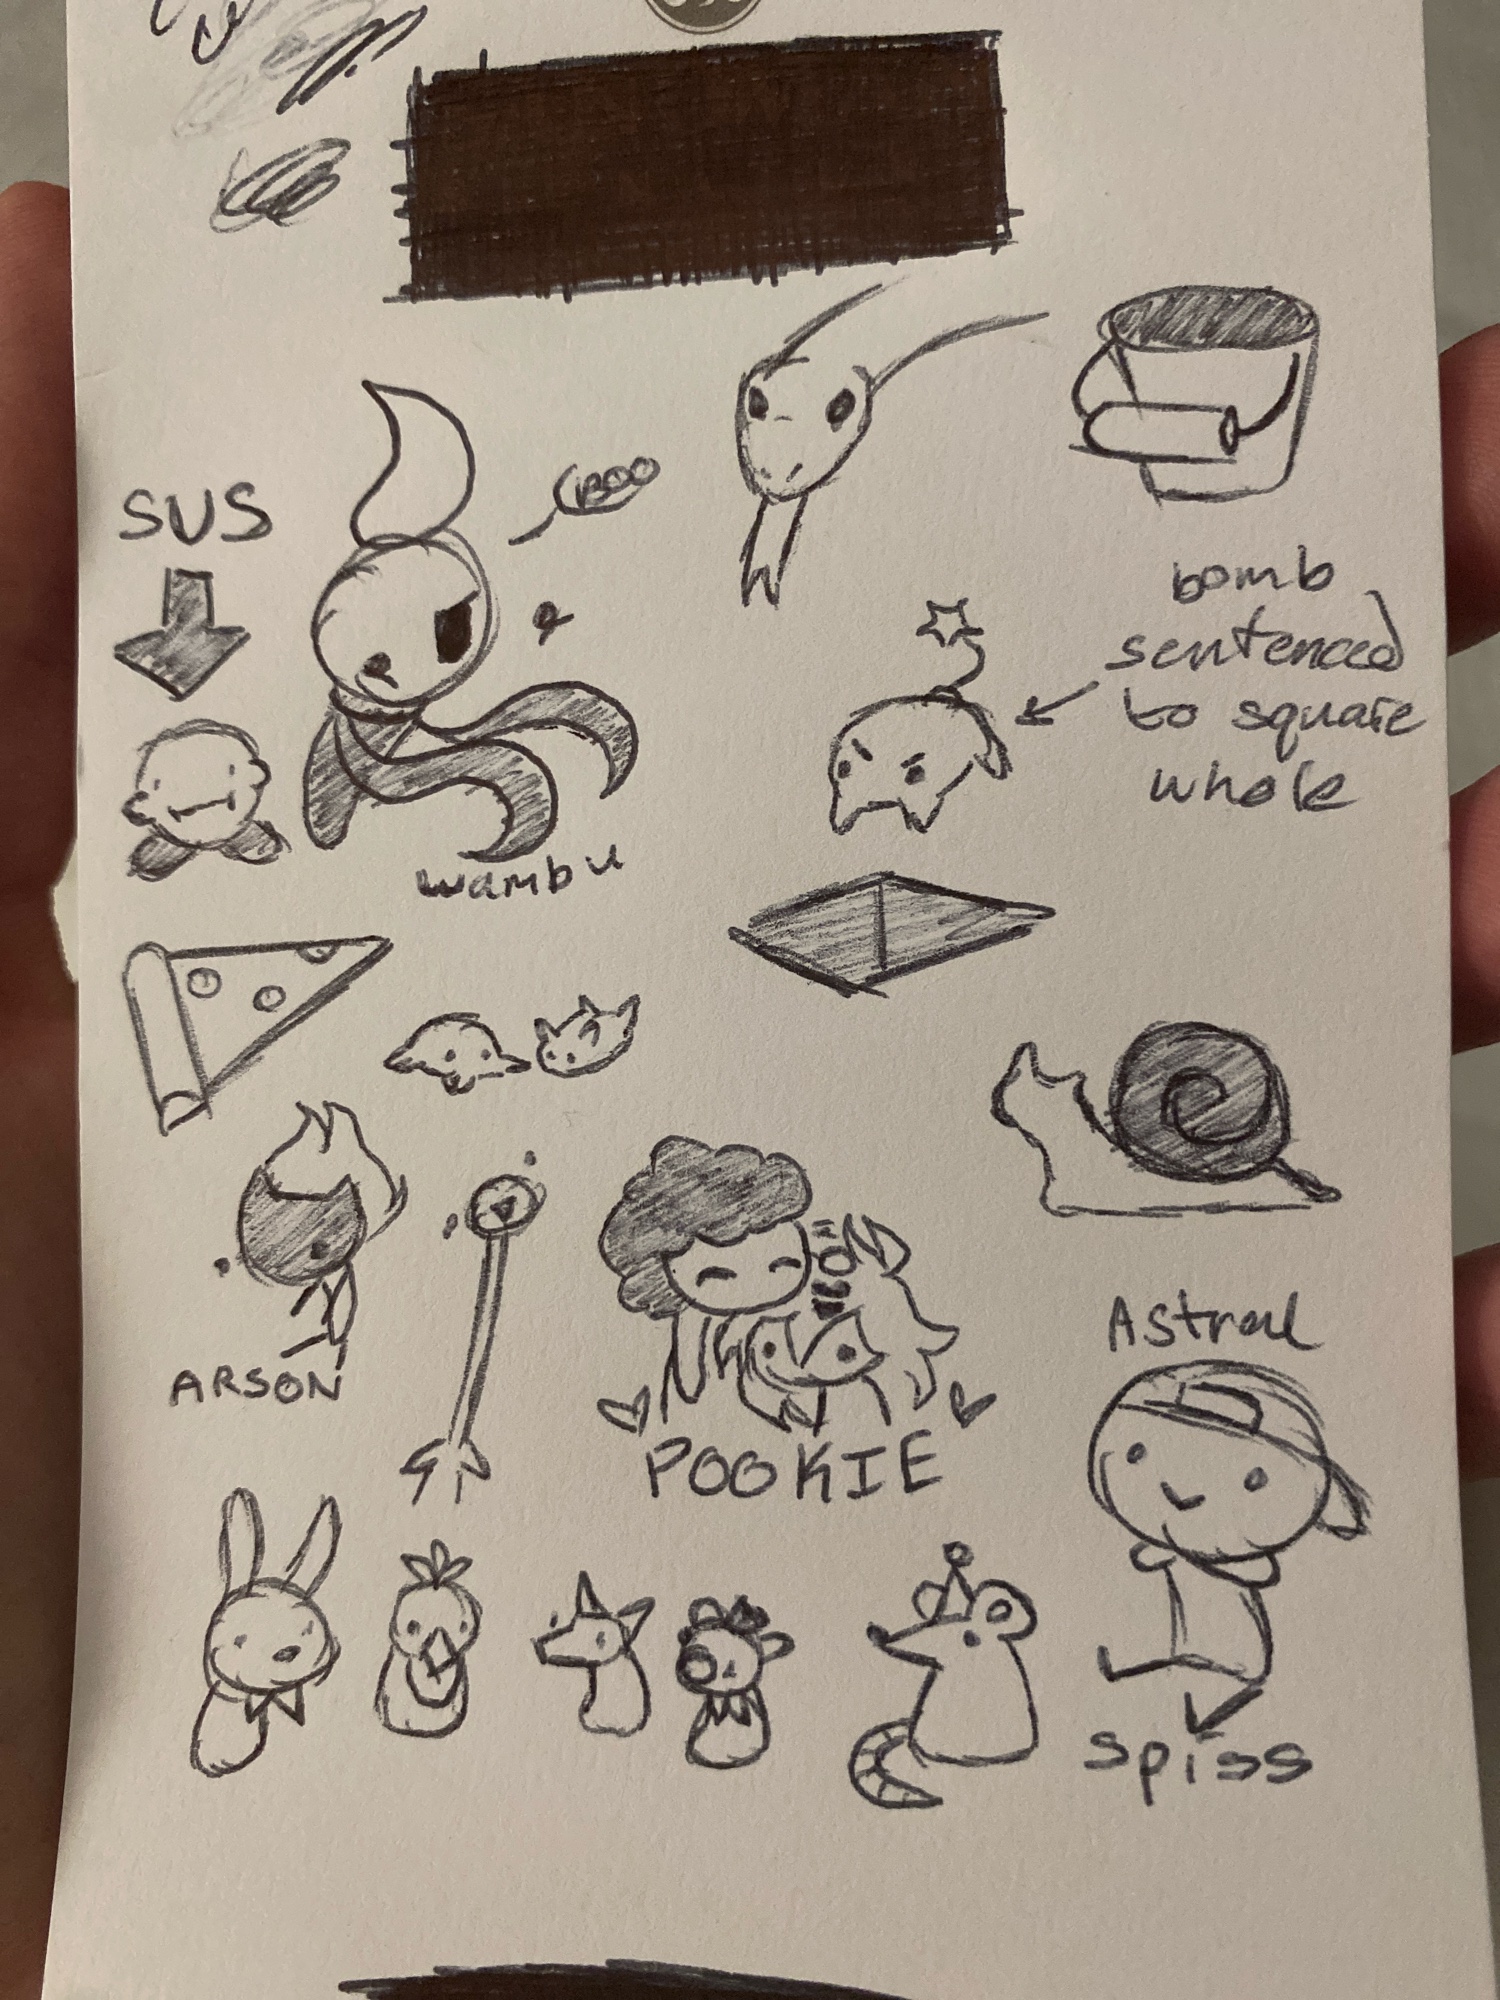 SUS
BOO
bomb
sentenced
to square
whole
wambu
ARSON
POOKIE
Astral
spiss